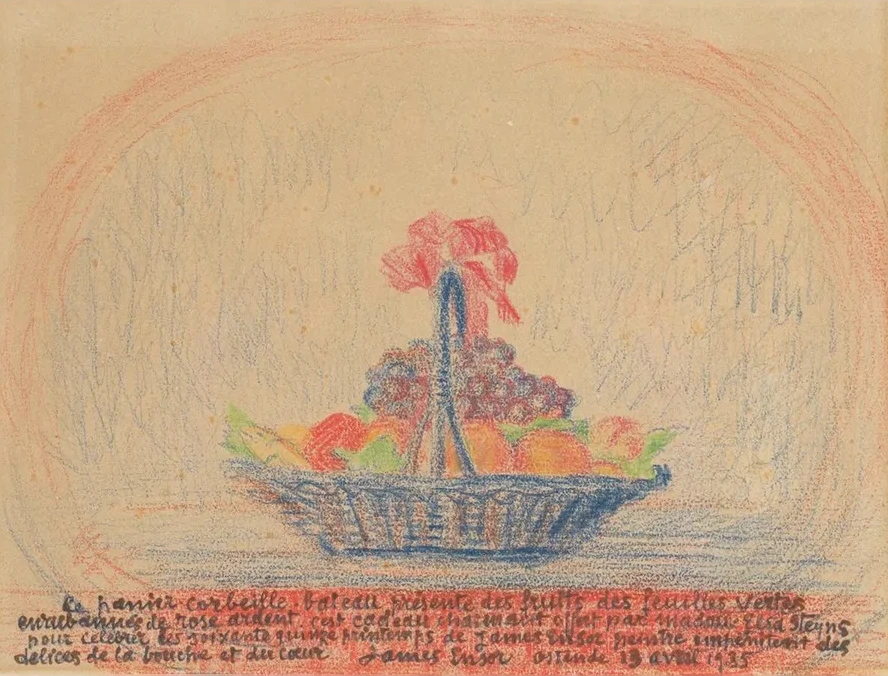 Le panier corbeille-bateau présente des fruits des feuilles vertes
enrubannés de rose ardent, c'est cadeau charmant offert par madame Elsa Steyns
pour célébrer les soixante quinze printemps de James Ensor peintre impénitent des
délices de la bouche et du cœur James Ensor Ostende 13 avril 1935